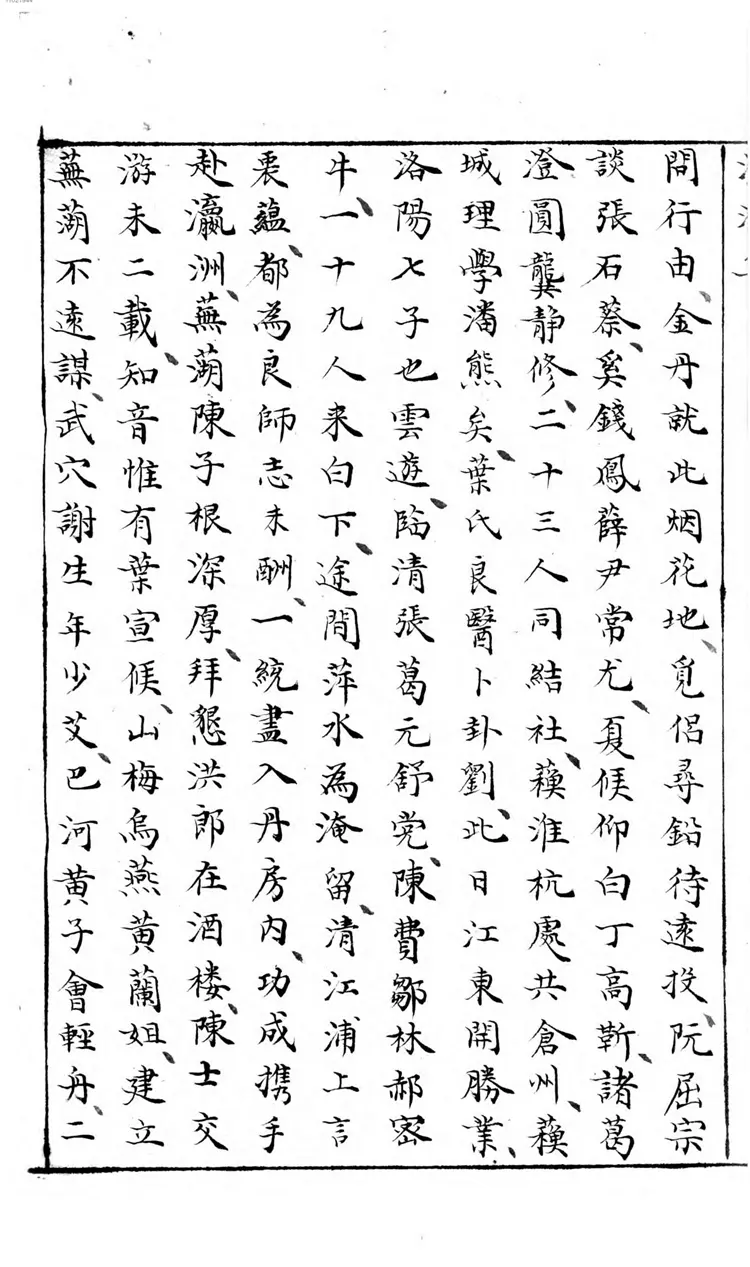 問行由金丹就此烟花地覓侶尋鉛待遠投阮屈宗
談張石蔡奚錢鳳薛尹常尤夏候仰白丁高靳諸葛
澄圓龔静修二十三人同結社蘓淮杭處共倉州蘓
城理學潘熊矣葉氏良醫卜卦劉此日江東開勝業
洛陽七子也雲遊臨清張葛元舒党陳費鄒林郝宻
牛一十九人来白下途間萍水為淹留清江浦上言
裹蘊都為良師志未酬一統盡入丹房内功成携手
赴瀛洲蕪湖陳子根深厚拜懇洪郎在酒楼陳士交
游未二載知音惟有葉宣候山梅烏燕黄蘭姐建立
蕪湖不遠謀武穴謝生年少艾巴河黄子會輕舟二